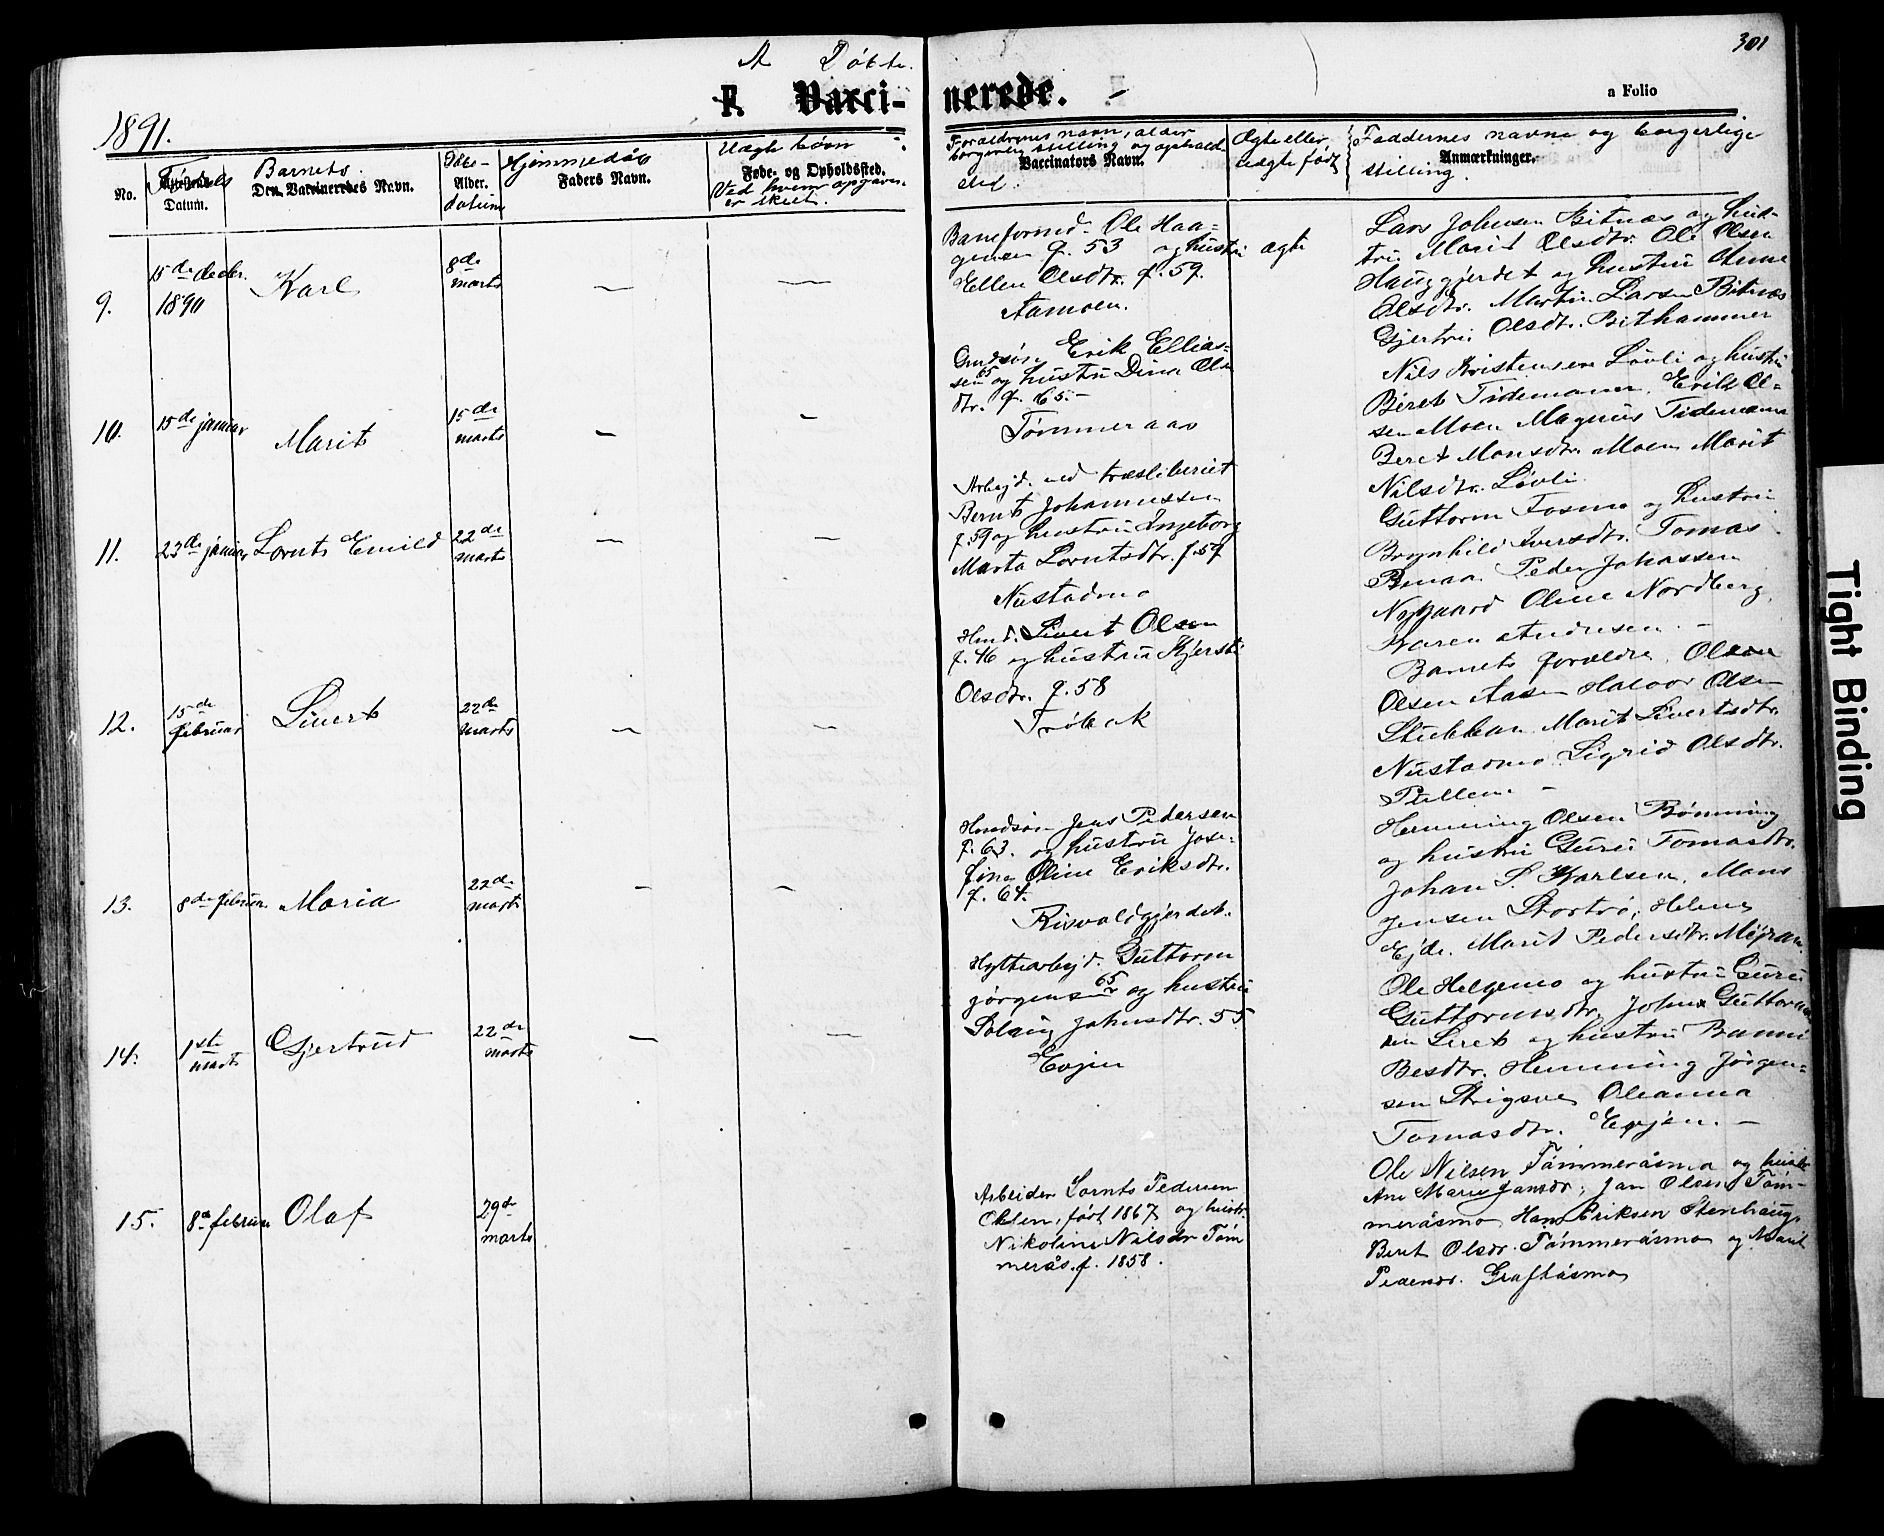 301
A Døbte.
F. Vacci-nerede.
a Folio
1891.
No.
Fødsels
Datum.
Barnets
Den Vaccineredes Navn.
Alder.
datum
Hjemmedøb
Faders Navn.
Uægte børn
Føde- og Opholdssted.
Ved hvem opgaven
er skeet.
Forældrenes navn, alder
borgerlig stilling og opholds
sted.
Vaccinators Navn.
Ægte eller
uægte født
Faddernes navne og borgerlige
stilling.
Anmærkninger.
9.
15de decbr.
1890
Karl
8de
marts
—
—
Baneformd. Ole Haa-
gensen f. 53 og hustru
Ellen Olsdtr. f. 59.
Aamoen.
ægte
Lars Johnsen Bitnæs og hus-
tru Marit Olsdtr. Ole Olsen
Hauggjerdet og hustru Anne
Olsdtr. Martin Larsen Bitnæs
Gjertru Olsdtr. Bithammer
10.
15de januar
Marit
15de
marts
—
—
Erik Ellias-
sen 65 og hustru Dina Ols
dtr. f. 65.-
Tømmeraas
Nils Kristensen Løvli og hustru
Beret Tidemann. Erik Ol-
sen Moen Magnus Tidemann
Beret Monsdtr. Moen Marit
Nilsdtr. Løvli.
11.
23de januar
Lornts Emild
22de
marts
—
—
Arbejd. ved træsliberiet
Bernt Johannessen
f. 59 og hustru Ingeborg
Marta Lorntsdtr. f. 59
Nustadmo
Guttorm Fosmo og hustru
Brynhild Iversdtr. Tomas
Renaa. Peder Johassen
Nygaard Oline Nordberg,
Karen Andresen. -
12.
15de
februar
Sivert
22de
marts
—
—
Hmd. Sivert Olsen
f. 46 og hustru Kjersti
Olsdtr. f. 58
Trøbak
Barnets forældre, Olaus
Olsen Aasen Halvor Olsen
Stubban Marit Sivertsdtr.
Nustadmo Sigrid Olsdtr.
13.
8de februar
Maria
22de
marts
—
—
Hmdsøn Jens Pedersen
f. 63. og hustru Jose-
fine Oline Eriksdtr.
f. 64.
Risvaldgjerdet.
Hemming Olsen Rønning
og hustru Guru Tomasdtr.
Johan S. Karlsen, Mons
Jensen Stortrø, Helena
Ejde. Marit Pedersdtr.
14.
1ste
marts
Gjertrud
22de
marts
—
—
Hyttearbejd. Guttorm
Jørgensen 65 og hustru
Solaug Johnsdtr. 55
Evjen
Ole Helgemo og hustru Guru
Guttormsdtr. John Guttorm
sen Leret og hustru
Besdtr. Hemming Jørgen-
sen Oleanna
Tomasdtr. Evjen. -
15.
8de februar
Olaf
29de
marts
Arbeider Lornts Pedersen
Olsen, født 1867 og hustr.
Nikoline Nilsdr Tøm
merås. f. 1858.
Ole Nilsen Tømmeråsmo og hustr.
Ane Marie Jansdr, Jan Olsen Tøm-
meråsmo, Hans Eriksen Stenhaug,
Beret Olsdr. Tømmeråsmo og Marit
Pedersdr. Graftåsmo
Tight Binding